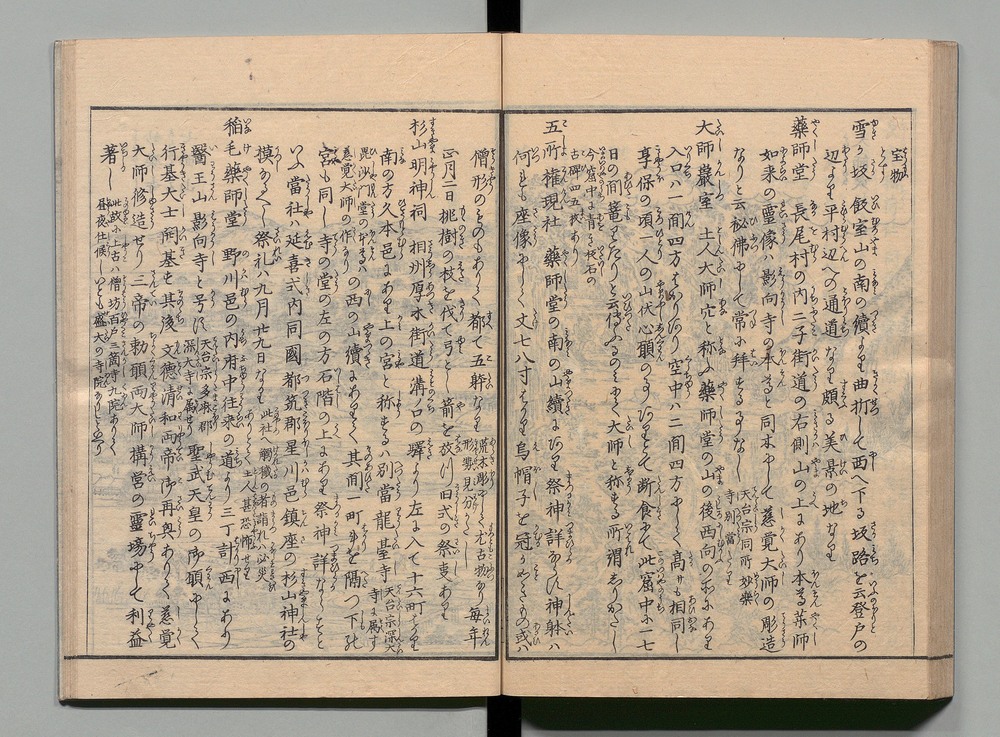 宝物
雪が坂 飯室山の南の續よりゆ曲折して西へ下る坂路を云登戸の
辺より平村辺への通道なり頗る美景の地なり
藥師堂 長尾村の内二子街道の右側山の上にあり本尊薬師
如来の靈像ハ影向寺の本尊と同木にして慈覚大師の彫造
なりと云秘佛にして常に拜する事なし 天台宗同所妙樂寺別當たり
大師巖室 土人大師穴と称ふ藥師堂の山の後西向の所にあり
入口ハ一間四方はかり 空中ハ二間四方にして高サも相同し
享保の頃一人の山伏心願の事ありとて断食にて此窟中に一七
日の間篭せりと云傳ふるのミにて大師と称する所謂志りかたし
今窟中に青き板石の古碑四五枚あり
五所権現社 藥師堂の南の山續にあり祭神詳ならす神躰ハ
何れも座像にして丈七八寸はかり烏帽子を冠りたるもの或ハ
僧形のものもありて都て五躰なり 荒木彫にして尤古物なり形勢見分かたし 毎年
正月二日桃樹の枝を伐て弓とし箭を放つ旧式の祭事あり
杉山明神祠 相州厚木街道溝口の驛より左に入て十六町はかり
南の方久本邑にあり上の宮と称するハ別當龍臺寺 天台宗深大寺に属す
毘沙門堂の本尊ハ慈覚大師の作なり の西の山續にありて其間一町半を隔つ下の
宮も同し寺の堂の左の方石階の上にあり祭神詳ならすと
いふ當社ハ延喜式内同國都筑郡星川邑鎮座の杉山神社の
模なるへし祭礼ハ九月廿九日なり 此社へ癩職の者詣れハ必災ありとて土人甚恐怖せり
稲毛藥師堂 野川邑の内府中往来の道より三丁計西にあり
醫王山影向寺と号す 天台宗多摩郡深大寺に属せり 聖武天皇の御願にして
行基大士開基す其後文德清和両帝御再興ありて慈覚
大師修造せり三帝の勅願両大師構営の靈場にして利益
著し 此故に上古ハ僧坊百戸三箇寺九院ありて昼夜仕候しいとも盛大の寺院なりしとなり